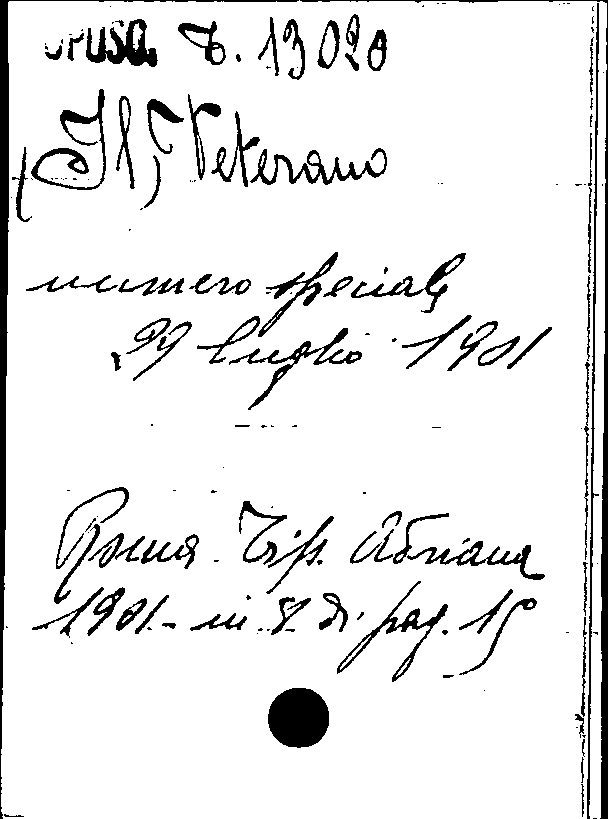 OPUSC. B. 13020
Il Veterano
numero speciale
29 luglio 1901
Roma. Tip. Adriana
1901 - in 8 di pag. 15